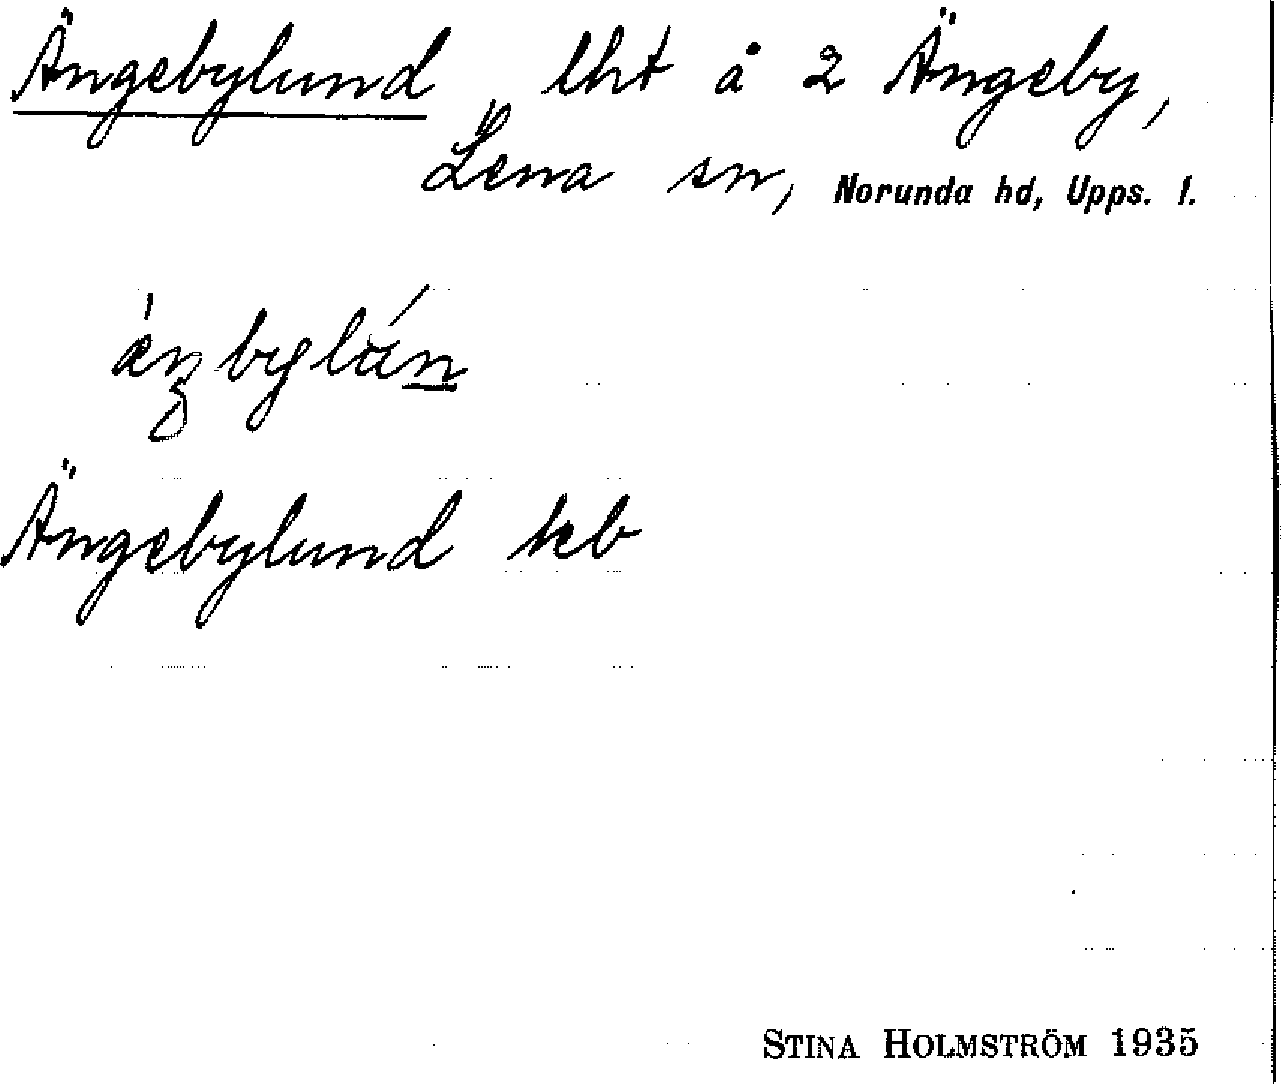 Ängebylund lht å 2 Ängeby,
Lena sn, Norunda hd, Upps. l.
Ängebylund kb
STINA HOLMSTRÖM 1935